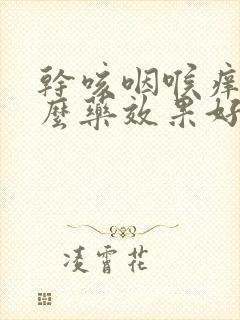 幹咳咽喉痒
麼藥效果好
凌霄花